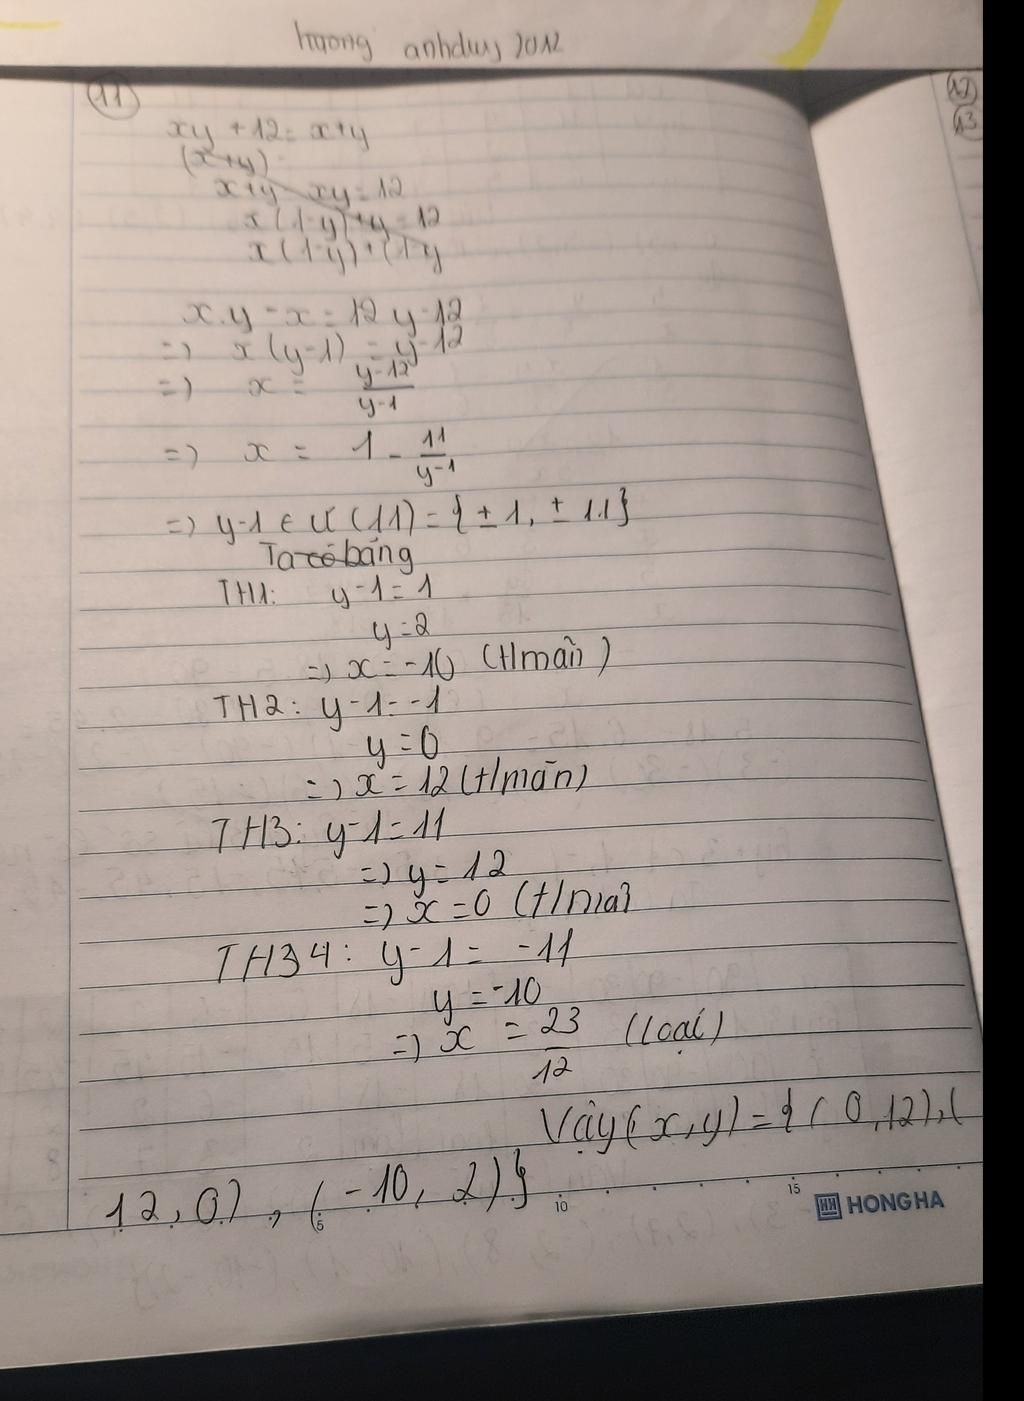 hương anhduy 2012
11
12
13
xy + 12 = x + y
(x+y)
x+y - xy = 12
x(1-y)+y = 12
x(1-y)+(1-y
x.y - x = 12 y-12
=> x(y-1) = y-12
=> x = \frac{y-12}{y-1}
=> x = 1 - \frac{11}{y-1}
=> y-1 ∈ Ư(11) = {±1, ±11}
Ta có bảng
TH1: y-1=1
y=2
=> x = -10 (t/mãn)
TH2: y-1=-1
y=0
=> x = 12 (t/mãn)
TH3: y-1=11
=> y=12
=> x=0 (t/mã)
TH34: y-1= -11
y = -10
=> x = \frac{23}{12} (loại)
Vậy (x,y) = { ( 0,12), (
12, 0), (-10, 2)}
5 10 15
HH HONG HA